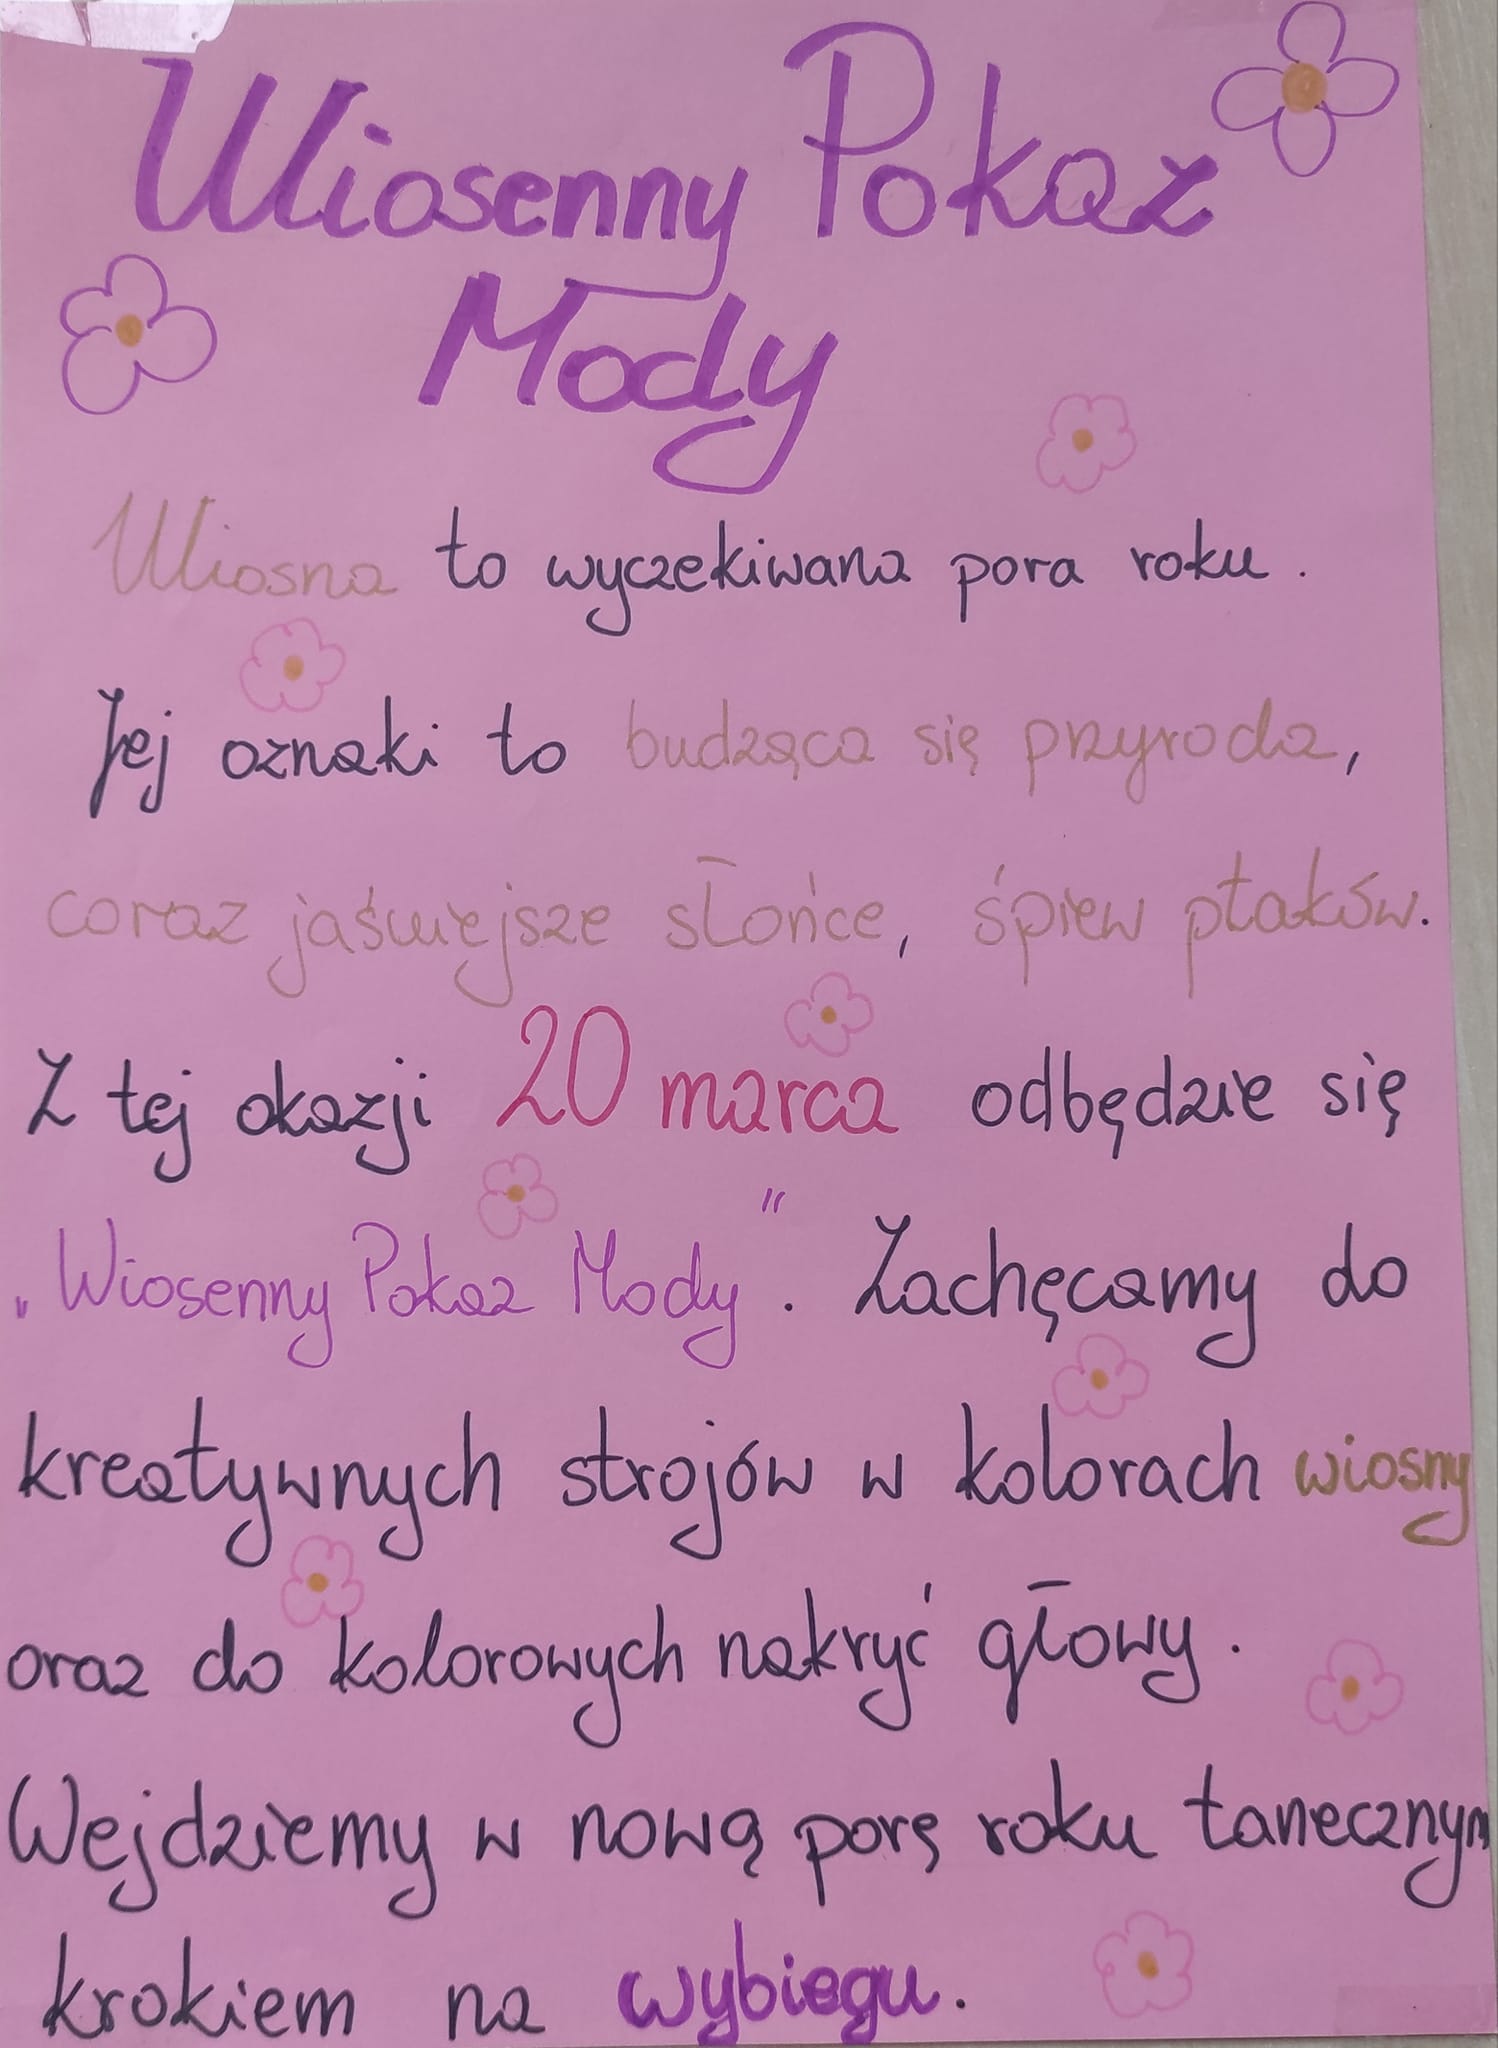 Wiosenny Pokaz
Mody
Wiosna to wyczekiwana pora roku.
Jej oznaki to budząca się przyroda,
coraz jaśniejsze słońce, śpiew ptaków.
Z tej okazji 20 marca odbędzie się
„Wiosenny Pokaz Mody". Zachęcamy do
kreatywnych strojów w kolorach wiosny
oraz do kolorowych nakryć głowy.
Wejdziemy w nową porę roku tanecznym
krokiem na wybiegu.